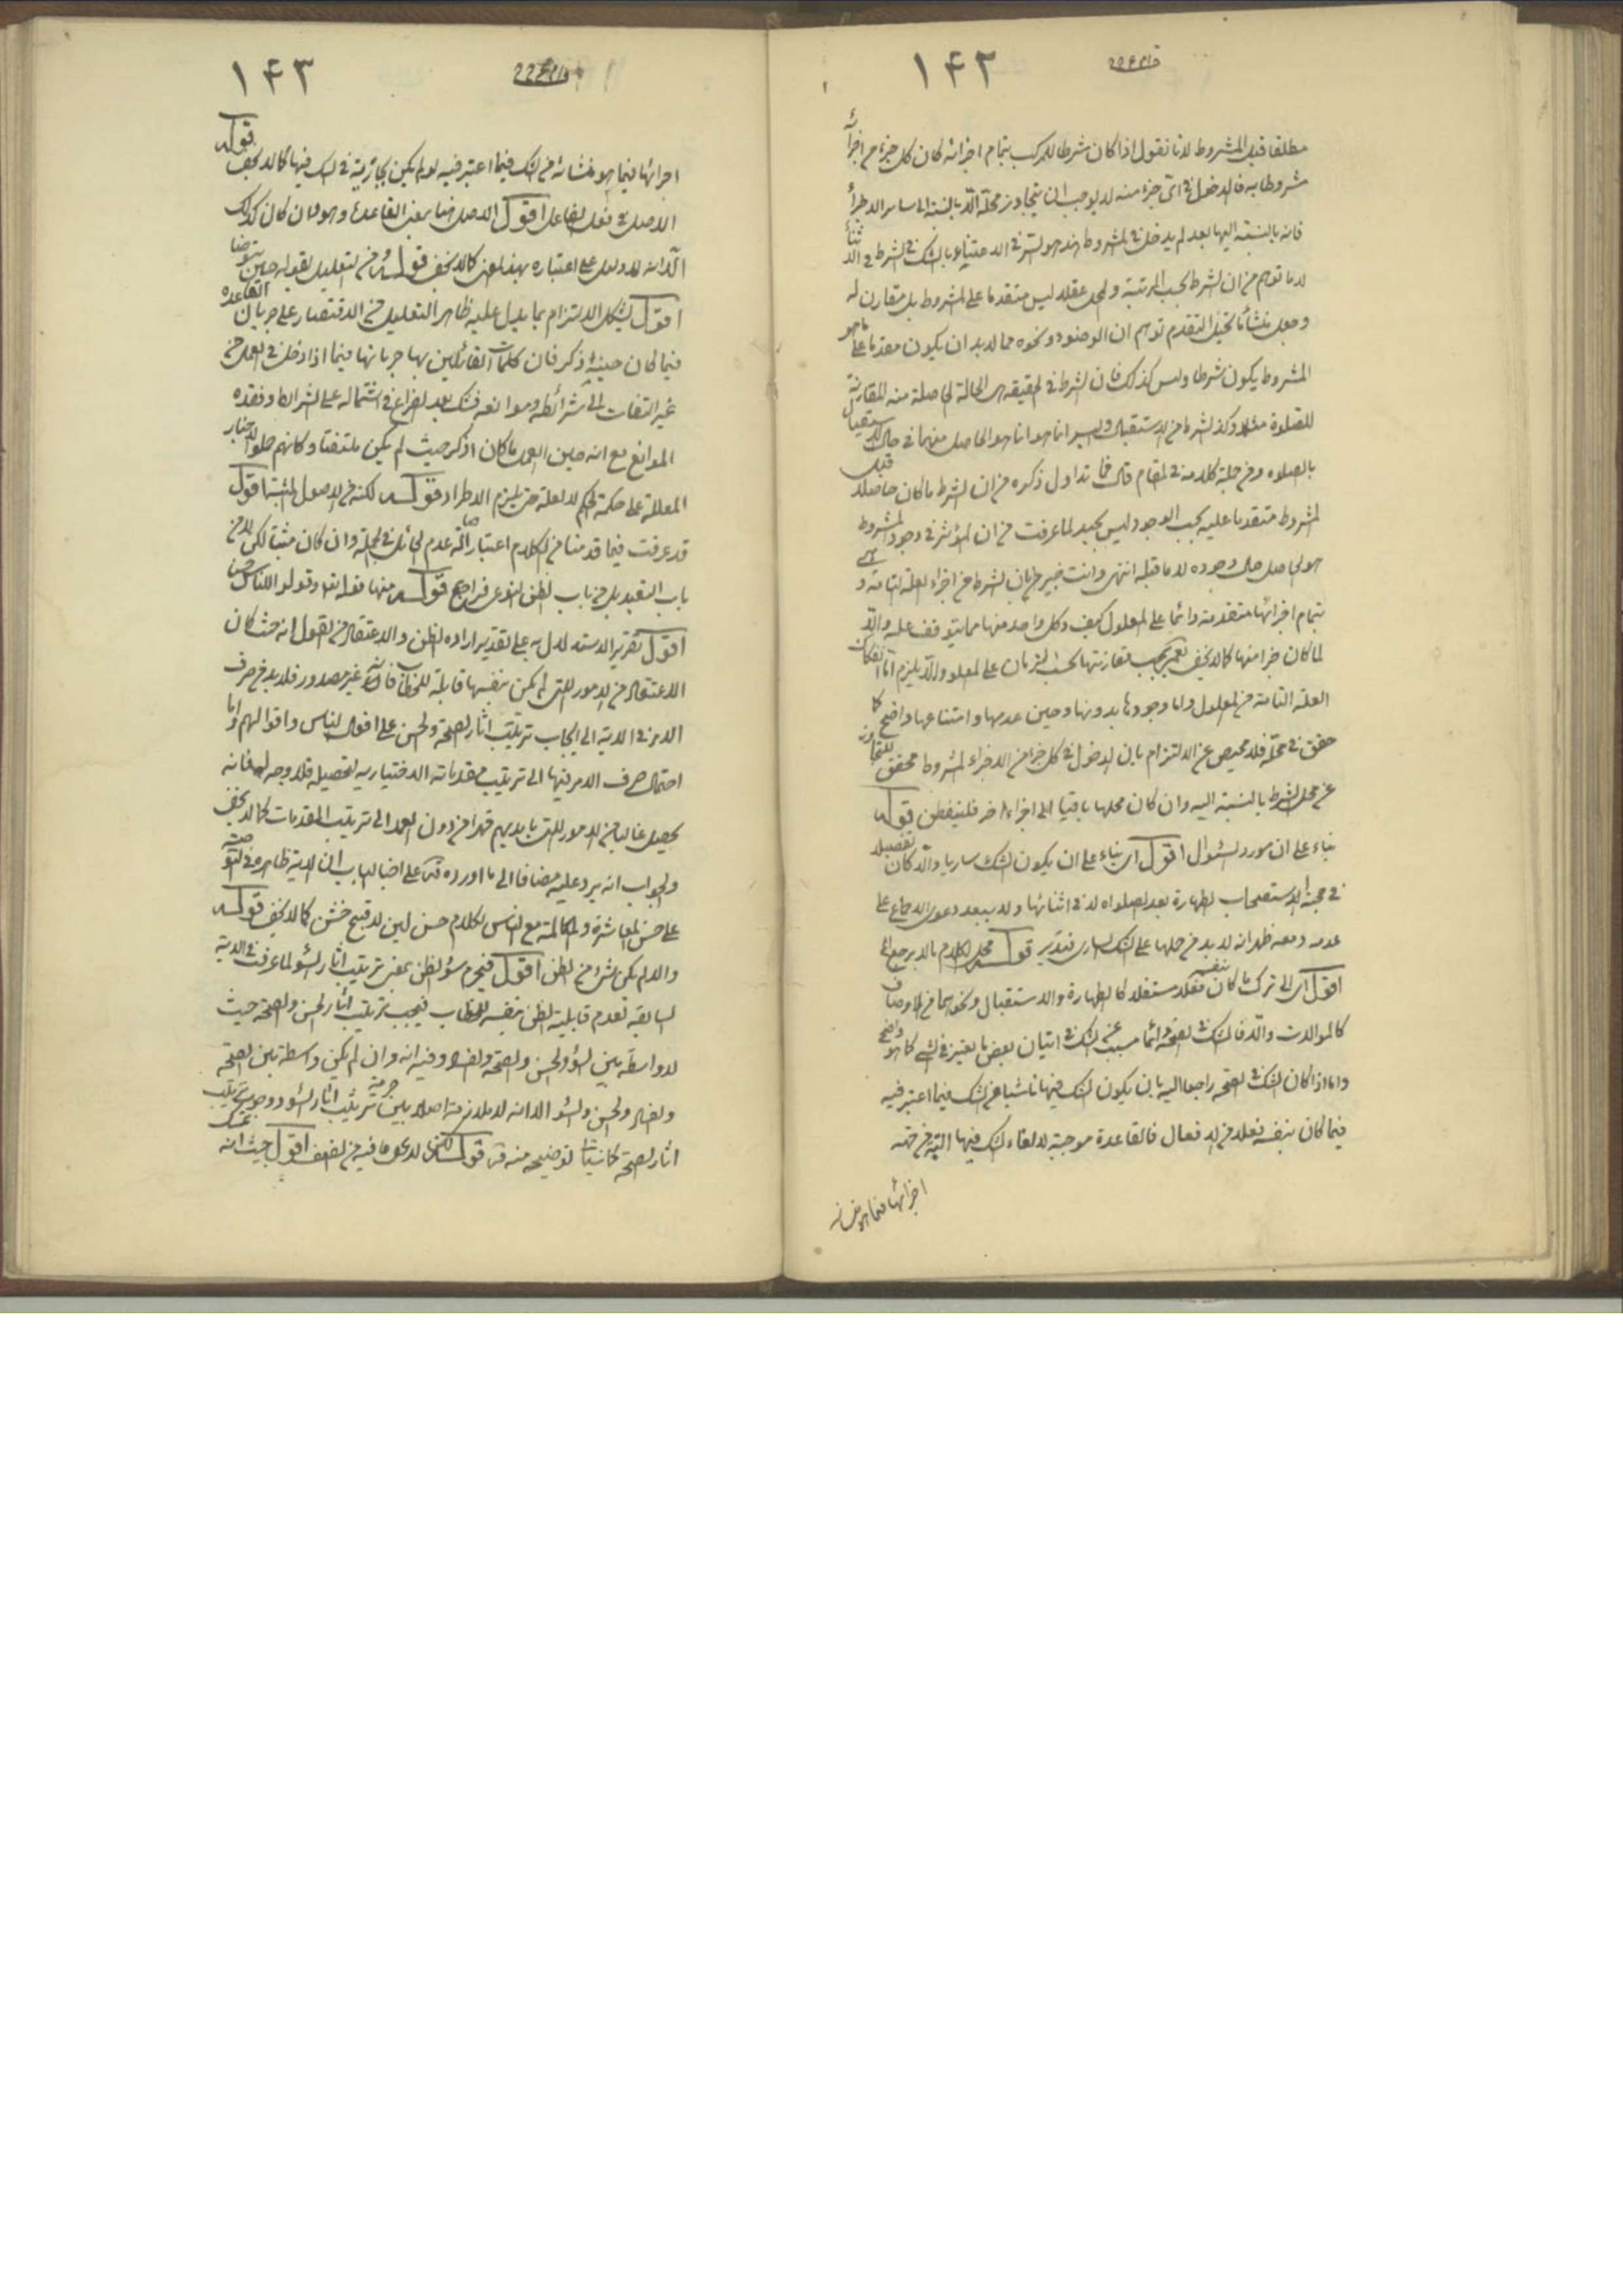 ١۴٢
مطلقا قبل المشروط لانا نقول اذا كان شرطا للمركب بتمام اجزائه كان كل جزء من اجزائه
مشروطا به فالدخول في اى جزء منه لا يوجب ان يتجاوز محله الا بالنسبة لا سائر الاجزاء
فانه بالنسبة اليها بعد لم يدخل في المشروط هذا هو السر في الاعتناء بالشك في الشرط في الاثناء
لا ما توهم من ان الشرط بحسب المرتبة ولمحل عقلا ليس متقدما على المشروط بل مقارن له
وجعل منشأ تخيل التقدم توهم ان الوضوء ونحوه مما لا بد ان يكون مقدما على ما هو
المشروط يكون شرطا وليس كذلك فان الشرط في الحقيقة هى الحالة الحاصلة منه المقارنة
للصلوة مثلا وكذلك شرط من الاستقبال والستر انما هو الحاصل منهما في حال الاشتغال
بالصلوه ومن جملة كلامه في المقام قال فما تداول ذكره من ان الشرط ما كان حاصلا قبل
المشروط متقدما عليه بحسب الوجود ليس بجيد لما عرفت من ان المؤثر في وجود المشروط
هو الحاصل حال وجوده لا ما قبله انتهى وانت خبير بان الشرط من اجزاء العلة التامة وهى
بتمام اجزائها متقدمة دائما على المعلول كيف وكل واحد منها مما يتوقف عليه والا
لما كان جزءا منها كما لا يخفى نعم يجب مقارنتها بحسب الزمان على المعلول والا يلزم اما انفكاك
العلة التامة من المعلول واما وجودها بدونها وحين عدمها وامتناعها واضح كما
حقق في محله فلا محيص عن الالتزام بان الدخول في كل جزء من الاجزاء المشروط محقق للتجاوز
عن محل الشرط بالنسبة اليه وان كان محلها باقيا الى اجزاء اخر فليتفطن قوله
بناء على ان مورد السؤال اقول اى بناء على ان يكون الشك ساريا والا كان تفصيلا
في حجية الاستصحاب الطهارة بعد الصلواه لا في اثنائها ولا يبعد دعوى الاجماع على
عدمه ومعه ظهر انه لا بد من حملها على الشك السارى فتدبر قوله محل الكلام ما لا يرجع الى
اقول اى الى ترك ما كان بنفسه فعلا مستقلا كالطهارة والاستقبال ونحوهما من الاوصاف
كالموالات والا فالشك في الصحة دائما مسبب عن الشك في اتيان بعض ما يعتبر في الشيء كما هو واضح
واما اذا كان الشك في الصحة راجعا اليه بان يكون الشك فيها ناشيا من الشك فيما اعتبر فيه
فيما كان بنفسه فعلا من الافعال فالقاعدة موجبة لالغاء الشك فيها البتة من جهة
اجرائها فيما هو منشأ
١۴٣
اجرائها فيما هو منشأه من الشك فيما اعتبر فيه لو لم يكن بجارية في الشك فيها كما لا يخفى قوله
الاصل في فعل الفاعل اقول الاصل هنا بمعنى القاعدة وهو وان كان كذلك
الا انه لا دليل على اعتباره بهذا المعنى كما لا يخفى قوله من التعليل بقوله حين يتوضأ
اقول يشكل الالتزام بما يدل عليه ظاهر التعليل من الاقتصار على جريان القاعدة
فيما كان حينئذ اذكر فان كلمات القائلين بها جريانها فيما اذا دخل في العمل من
غير التفات الى شرائطه وموانعه فشك بعد الفراغ في اشتماله على الشرائط وفقده
الموانع مع انه حين العمل ما كان اذكر حيث لم يكن ملتفتا وكانهم حملوا الاخبار
المعللة على حكمة الحكم لا العلة حتى يلزم الاطراد قوله لكنه من الاصول المثبتة اقول
قد عرفت فيما قدمنا من الكلام اعتبار اصالة عدم الحائل في الجملة وان كان مثبتا لكن لا من
باب التعبد بل من باب الظن النوعى فراجع قوله منها قوله تعالى وقولوا للناس حسنا
اقول تقرير الاستدلال به على تقدير ارادة الظن والاعتقاد من القول انه حيث كان
الاعتقاد من الامور التى لم يكن بنفسها قابلة للخطاب فانه غير مقدور فلا بد من صرف
الامر في الاية الى ايجاب ترتيب اثار الصحة والحسن على افعال الناس واقوالهم واما
احتمال صرف الامر فيها الى ترتيب مقدماته الاختيارية لتحصيله فلا وجه له فانه
يحصل غالبا من الامور التى بايديهم قهرا من دون العمد الى ترتيب المقدمات كما لا يخفى
والجواب انه يرد عليه مضافا الى ما اورده قده على اخبار الباب ان الاية ظاهرة في التوصية
على حسن المعاشرة والمكالمة مع الناس بكلام حسن لين لا قبيح خشن كما لا يخفى قوله
والا لم يكن شىء من الظن اقول فيحرم سوء الظن بمعنى ترتيب اثار السوء لما عرفت في الاية
السابقة لعدم قابلية الظن بنفسه للخطاب فيجب ترتيب اثار الحسن والصحة حيث
لا واسطة بين السوء والحسن والصحة والفساد وفيه انه وان لم يكن واسطة بين الصحة
والفساد والحسن والسوء الا انه لا ملازمة اصلا بين حرمة ترتيب اثار السوء ووجوب ترتيب
اثار الصحة كما سيأتى توضيحه منه قده قوله لكن لا يخفى ما فيه من الضعف اقول حيث انه